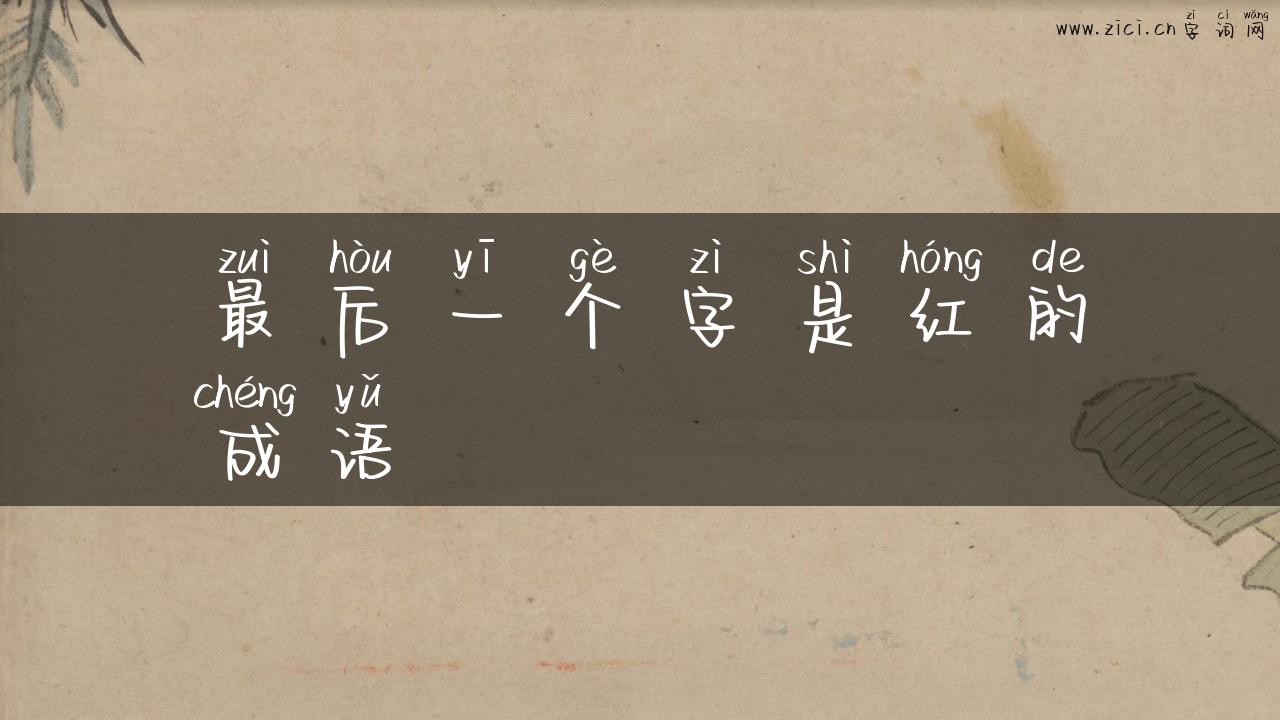 zì cí wǎng
www.zici.cn 字词网
zuì hòu yī gè zì shì hóng de
最后一个字是红的
chéng yǔ
成语